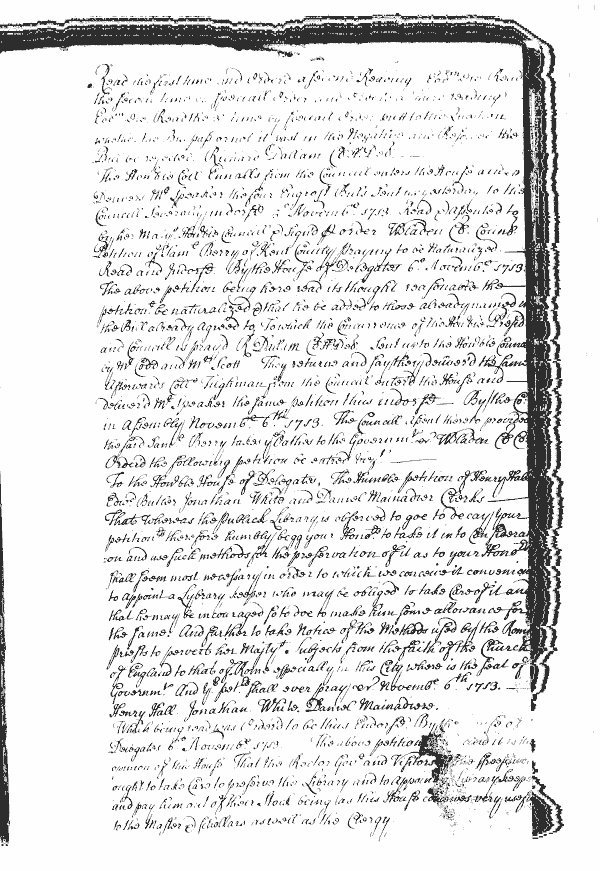 Read the first time and Orderd a second Reading Eod^m die Read
the second time by speciall Order and Orderd a third reading
Eod^m die Read the 3^d time by special Order put to the Question
whether the Bill pass or not it was in the Negative and Resolved the
Bill be rejected. Richard Dallam Cl. H. Del.
The Hon^ble Coll Ennalls from the Council enters the House and
Delivers M^r Speaker the four Engrost Bills sent up yesterday to the
Council Severally indorsed 5^th Novemb^r 1713 Read & Assented to
by her Maj^tys Hon^ble Council & Signd p order W Bladen Cl. Council
Petition of Sam^l Berry of Kent County praying to be Naturalized
Read and Indorsed By the House of Delegates 6^th Novemb^r 1713
The above petition being here read its thought reasonable the
petition^r be naturalized & that he be added to those already named in
the Bill already Agreed to To which the Concurrence of the Hon^ble Presid^t
and Council is prayd R Dallam Cl H Del. Sent up to the Hon^ble
by M^r Codd and M^r Scott They returne and say they deliverd the same
Afterwards Coll^o Tilghman from the Council enterd the House and
deliverd M^r Speaker the same petition thus indorsed By the
in Assembly Novemb^r 6^th 1713. The Council Assent thereto provided
the said Sam^l Berry take y^e Oathes to the Governm^t W Bladen Cl C
Orderd the following petition be entred viz^t
To the Hon^ble House of Delegates, The Humble petition of Henry Hall
Edw^d Butler Jonathan White and Daniel Mainadier Clerks
That whereas the Publick Library is observed to goe to decay your
petition^rs therefore humbly begg your Hono^rs to take it into Considerati
on and use such methods for the preservation of it as to your Hono^rs
shall seem most necessary in order to which we conceive it convenient
to appoint a Lybrary keeper who may be obliged to take Care of it and
that he may be incouraged so to doe to make him some allowance for
the same. And further to take Notice of the Methods used by the Rom^
priests to pervert her Maj^tys Subjects from the faith of the Church
of England to that of Rome especially in this City where is the seat of
Governm^t And y^r pet^rs shall ever pray &c^r Novemb^r 6^th 1713.
Henry Hall. Jonathan White. Daniel Mainadiere.
Which being read was Orderd to be thus Endorsed By the House of
Delegates 6^th Novemb^r 1713 The above petition read it is the
opinion of this House That the Rector Gov^rs and Visitors of the freeschool
ought to take Care to preserve the Library and to Appoint Lybrary keeper
and pay him out of their Stock being as this House conceives very usefull
to the Master & schollars as well as the Clergy